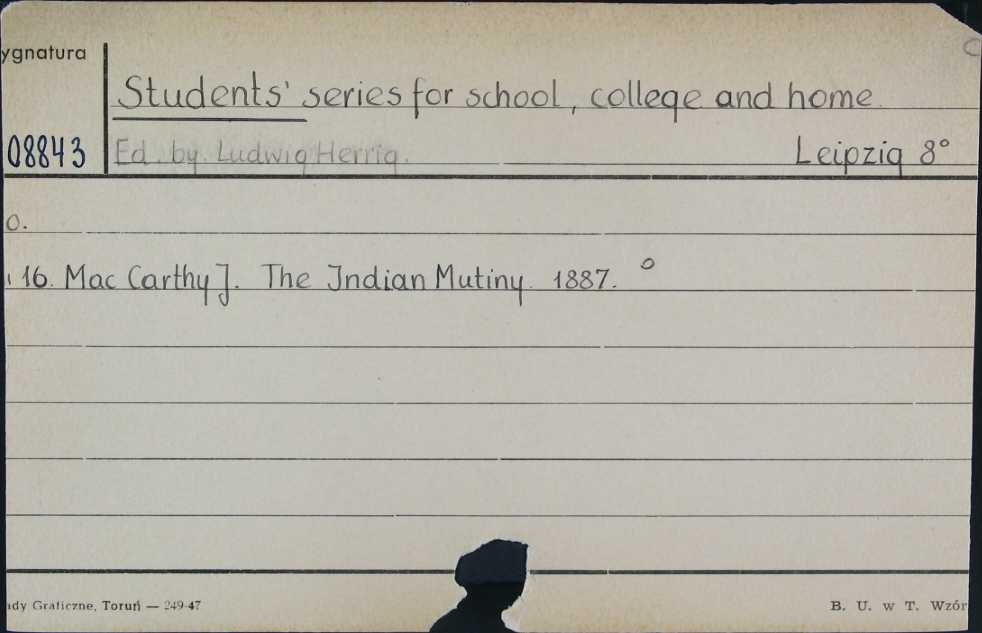 ygnatura
Students' series for school, college and home
08843 Ed. by. Ludwig Herrig. Leipzig 8°
o.
16. Mac Carthy J. The Indian Mutiny. 1887. °
dy Graficzne, Toruń — 249-47 B. U. w T. Wzór